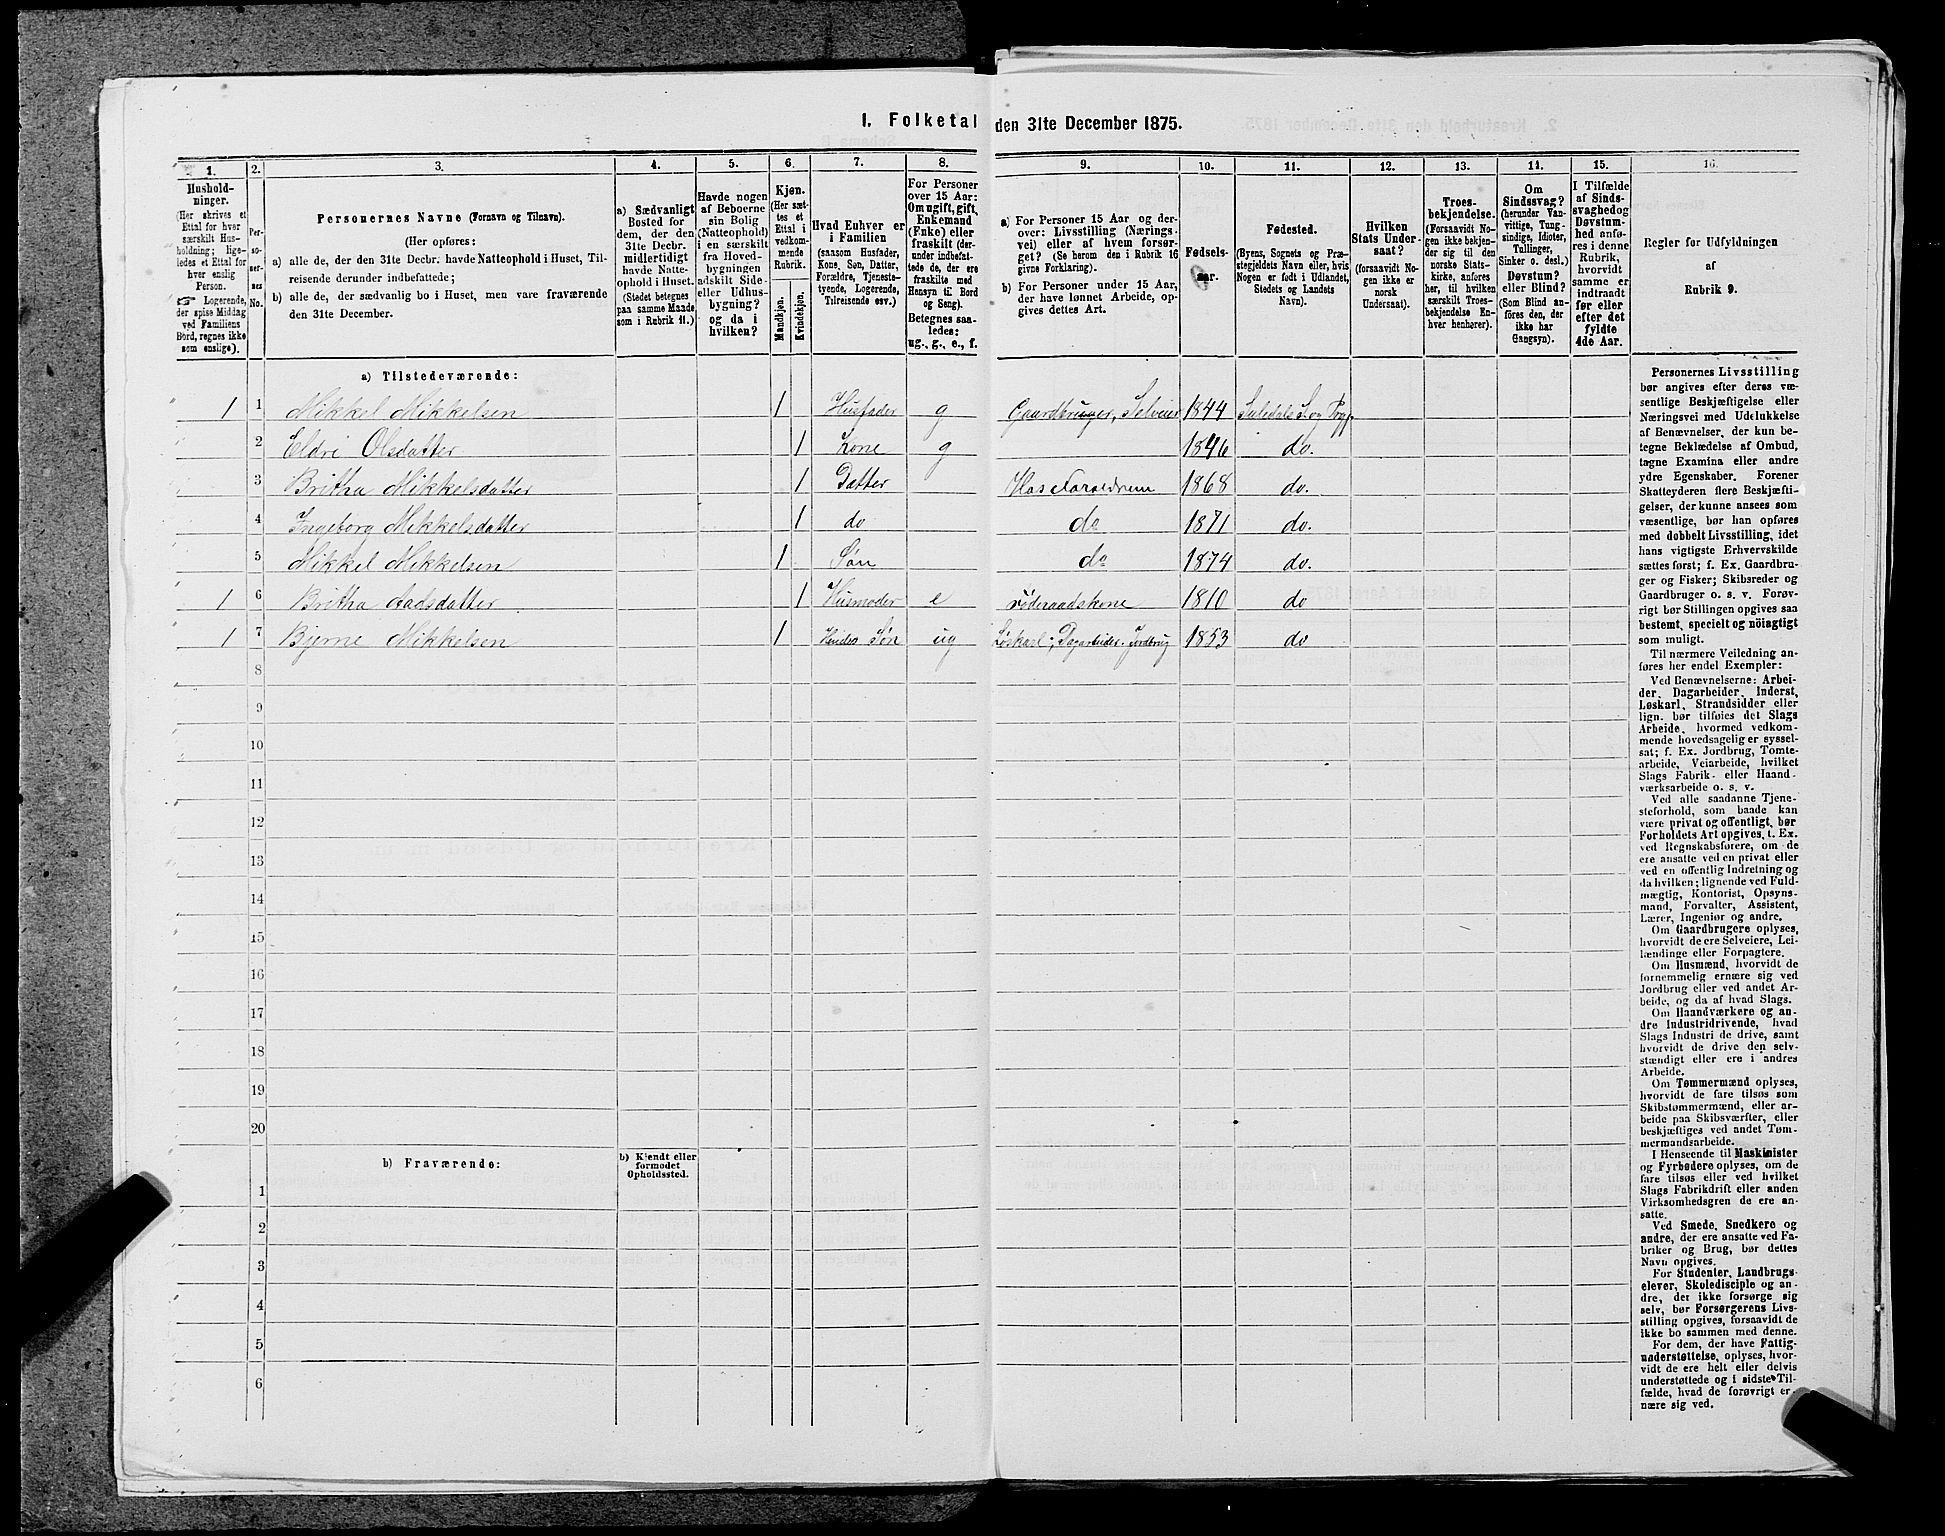 I. Folketal den 31te December 1875.
1. 2. 3. 4. 5. 6. 7. 8. 9. 10. 11. 12. 13. 14. 15. 16.
Hushold-
ninger.
(Her skrives et
Ettal for hver
særskilt Hus-
holdning; lige-
ledes et Ettal for
hver enslig
Person.
☞ Logerende,
der spise Middag
ved Familiens
Bord, regnes ikke
som enslige).
Per-
so-
ner-
nes
No.
Personernes Navne (Fornavn og Tilnavn).
(Her opføres:
a) alle de, der den 31te Decbr. havde Natteophold i Huset, Til-
reisende derunder indbefattede;
b) alle de, der sædvanlig bo i Huset, men vare fraværende
den 31te December.
a) Sædvanligt
Bosted for
dem, der den
31te Decbr.
midlertidigt
havde Natte-
ophold i Huset.
(Stedet betegnes
paa samme Maade
som i Rubrik 11.)
Havde nogen
af Beboerne
sin Bolig
(Natteophold)
i en særskilt
fra Hoved-
bygningen
adskilt Side-
eller Udhus-
bygning?
og da i
hvilken?
Kjøn.
(Her sæt-
tes et
Ettal i
vedkom-
mende
Rubrik.
Mandkjøn.
Kvindekjøn.
Hvad Enhver er
i Familien
(saasom Husfader,
Kone, Søn, Datter,
Forældre, Tjeneste-
tyende, Logerende,
Tilreisende osv.)
For Personer
over 15 Aar:
Om ugift, gift,
Enkemand
(Enke) eller
fraskilt (der-
under indbefat-
tede de, der ere
fraskilte med
Hensyn til Bord
og Seng).
Betegnes saa-
ledes:
ug., g., e., f.
a) For Personer 15 Aar og der-
over: Livsstilling (Nærings-
vei) eller af hvem forsør-
get? (Se herom den i Rubrik 16
givne Forklaring).
b) For Personer under 15 Aar,
der have lønnet Arbeide, op-
gives dettes Art.
Fødsels-
aar.
Fødested.
(Byens, Sognets og Præ-
stegjeldets Navn eller, hvis
Nogen er født i Udlandet,
Stedets og Landets
Navn).
Hvilken
Stats Under-
saat?
(forsaavidt No-
gen ikke er
norsk
Undersaat).
Troes-
bekjendelse.
(Forsaavidt No-
gen ikke bekjen-
der sig til den
norske Stats-
kirke, anføres
her, til hvilken
særskilt Troes-
bekjendelse En-
hver henhører).
Om
Sindssvag?
(herunder Van-
vittige, Tung-
sindige, Idioter,
Tullinger,
Sinker o. desl.)
Døvstum?
eller Blind?
(Som Blind an-
føres den, der
ikke har
Gangsyn).
I Tilfælde
af Sinds-
svaghed og
Døvstum-
hed anfø-
res i denne
Rubrik,
hvorvidt
samme er
indtraadt
før eller
efter det
fyldte
4de Aar.
Regler for Udfyldningen
af
Rubrik 9.
a) Tilstedeværende:
1 1 Mikkel Mikkelsen 1 Husfader g Gaardbruger, Selveier 1844 Suledals S. og Prgj.
2 Eldri Olsdatter 1 Kone g 1846 do.
3 Britha Mikkelsdatter 1 Datter Hos Foraeldrene 1868 do.
4 Ingeborg Mikkelsdatter 1 do do 1871 do.
5 Mikkel Mikkelsen 1 Søn do 1874 do.
1 6 Britha Aadsdatter 1 Husmoder e Føderaadskone 1810 do
1 7 Bjerne Mikkelsen 1 Hendes Søn ug Løskarl; Dagarbeider. Jordbrug 1853 do
8
9
10
11
12
13
14
15
16
17
18
19
20
b) Fraværende:
b) Kjendt eller
formodet
Opholdssted.
1
2
3
4
5
6
Personernes Livsstilling
bør angives efter deres væ-
sentlige Beskjæftigelse eller
Næringsvei med Udelukkelse
af Benævnelser, der kun be-
tegne Beklædelse af Ombud,
tagne Examina eller andre
ydre Egenskaber. Forener
Skatteyderen flere Beskjæfti-
gelser, der kunne ansees som
væsentlige, bør han opføres
med dobbelt Livsstilling, idet
hans vigtigste Erhvervskilde
sættes først; f. Ex. Gaardbru-
ger og Fisker; Skibsreder og
Gaardbruger o. s. v. Forøv-
rigt bør Stillingen opgives saa
bestemt, specielt og nøiagtigt
som muligt.
Til nærmere Veiledning an-
føres her endel Exempler:
Ved Benævnelserne: Arbei-
der, Dagarbeider, Inderst,
Løskarl, Strandsidder eller
lign. bør tilføies det Slags
Arbeide, hvormed vedkom-
mende hovedsagelig er syssel-
sat; f. Ex. Jordbrug, Tomte-
arbeide, Veiarbeide, hvilket
Slags Fabrik- eller Haand-
værksarbeide o. s. v.
Ved alle saadanne Tjene-
steforhold, som baade kan
være privat og offentligt, bør
Forholdets Art opgives, t. Ex.
ved Regnskabsførere, om de
ere ansatte ved en privat eller
ved en offentlig Indretning og
da hvilken; lignende ved Fuld-
mægtig, Kontorist, Opsyns-
mand, Forvalter, Assistent,
Lærer, Ingeniør og andre.
Om Gaardbrugere oplyses,
hvorvidt de ere Selveiere, Lei-
lændinge eller Forpagtere.
Om Husmænd, hvorvidt de
fornemmelig ernære sig ved
Jordbrug eller ved andet Ar-
beide, og da af hvad Slags.
Om Haandværkere og an-
dre Industridrivende, hvad
Slags Industri de drive, samt
hvorvidt de drive den selv-
stændigt eller ere i andres
Arbeide.
Om Tømmermænd oplyses,
hvorvidt de fare tilsøs som
Skibstømmermænd, eller ar-
beide paa Skibsværfter, eller
beskjæftiges ved andet Tøm-
mermandsarbeide.
I Henseende til Maskinister
og Fyrbødere oplyses, om de
fare tilsøs eller ved hvilket
Slags Fabrikdrift eller anden
Virksomhedsgren de ere an-
satte.
Ved Smede, Snedkere og
andre, der ere ansatte ved Fa-
briker og Brug, bør dettes
Navn opgives.
For Studenter, Landbrugs-
elever, Skoledisciple og an-
dre, der ikke forsørge sig
selv, bør Forsørgerens Livs-
stilling opgives, forsaavidt de
ikke bo sammen med denne.
For dem, der have Fattig-
understøttelse, oplyses, hvor-
vidt de ere helt eller delvis
understøttede og i sidste Til-
fælde, hvad de forøvrigt er-
nære sig ved.